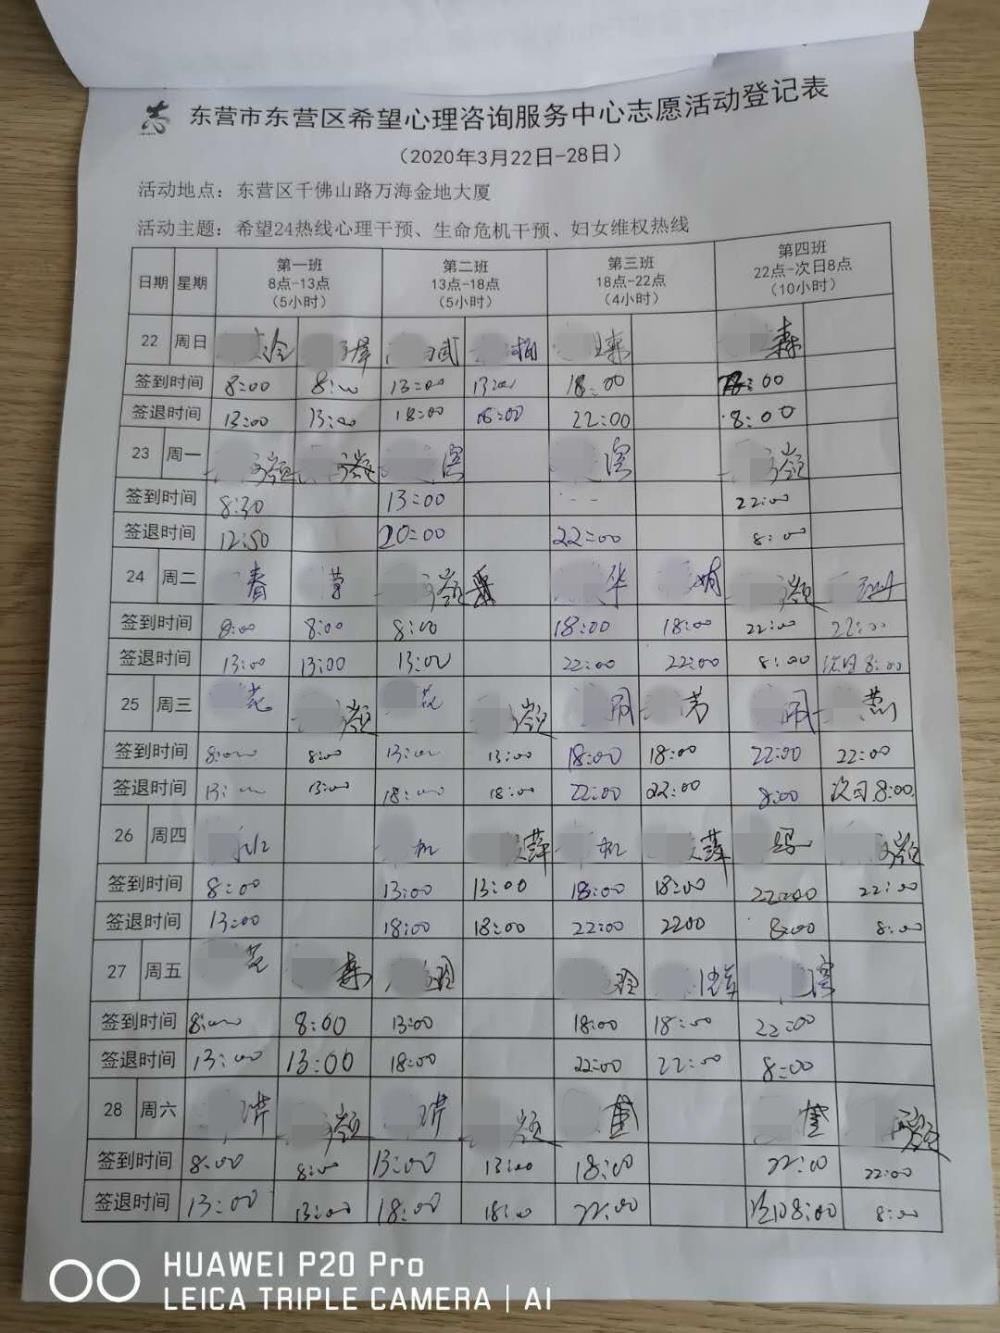 志 东营市东营区希望心理咨询服务中心志愿活动登记表
（2020年3月22日-28日）
活动地点：东营区千佛山路万海金地大厦
活动主题：希望24热线心理干预、生命危机干预、妇女维权热线
日期 星期 第一班 8点-13点 （5小时） 第二班 13点-18点 （5小时） 第三班 18点-22点 （4小时） 第四班 22点-次日8点 （10小时）
22 周日 森
签到时间 8:00 8:00 13:00 13:00 18:00 :00
签退时间 13:00 13:00 18:00 18:00 22:00 8:00
23 周一 滨 滨
签到时间 8:30 13:00 -- 22:00
签退时间 12:50 20:00 22:00 8:00
24 周二 春 华 娟
签到时间 8:00 8:00 8:00 18:00 18:00 22:00 22:00
签退时间 13:00 13:00 13:00 22:00 22:00 8:00 次日8:00
25 周三 花 花 芳 燕
签到时间 8:00 8:00 13:00 13:00 18:00 18:00 22:00 22:00
签退时间 13:00 13:00 18:00 18:00 22:00 22:00 8:00 次日8:00
26 周四 机 萍 机 萍
签到时间 8:00 13:00 13:00 18:00 18:00 22:00 22:00
签退时间 13:00 18:00 18:00 22:00 2200 8:00 8:00
27 周五 花 森 玲 玲 滨
签到时间 8:00 8:00 13:00 18:00 18:00 22:00
签退时间 13:00 13:00 18:00 22:00 22:00 8:00
28 周六
签到时间 8:00 8:00 13:00 13:00 18:00 22:00 22:00
签退时间 13:00 13:00 18:00 18:00 22:00 次日8:00 8:00
HUAWEI P20 Pro
LEICA TRIPLE CAMERA | AI